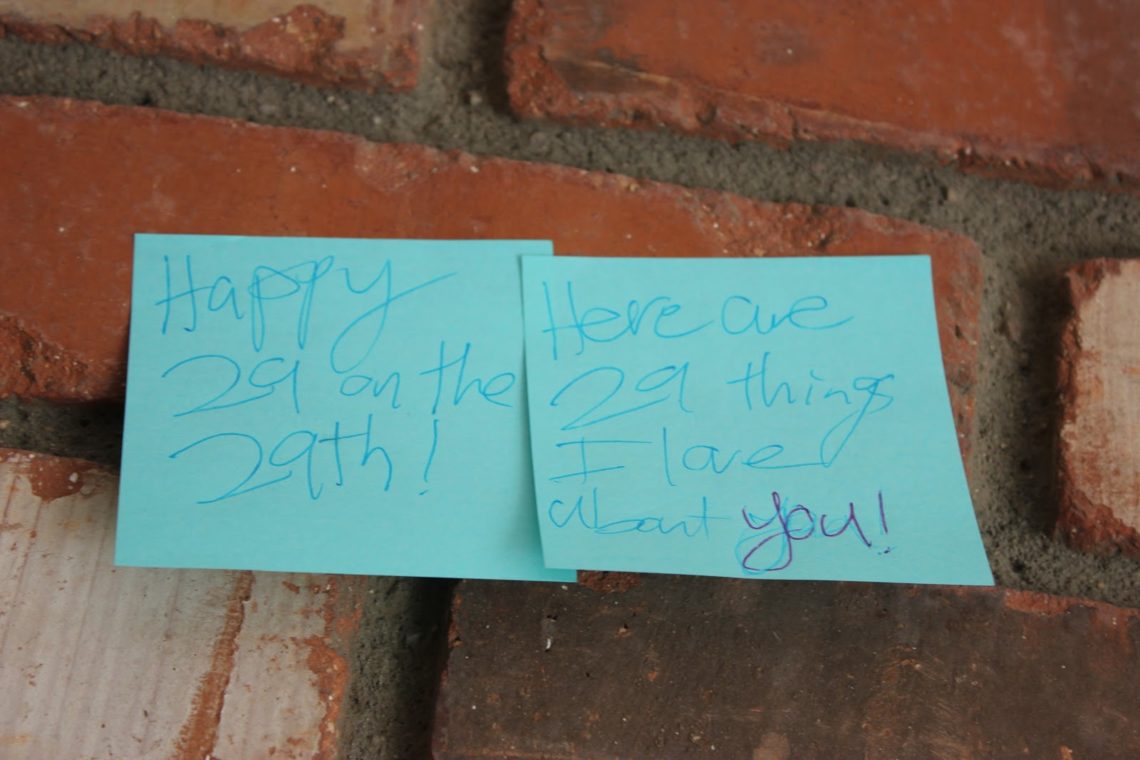 Happy
29 on the
29th!
Here are
29 things
I love
about you!